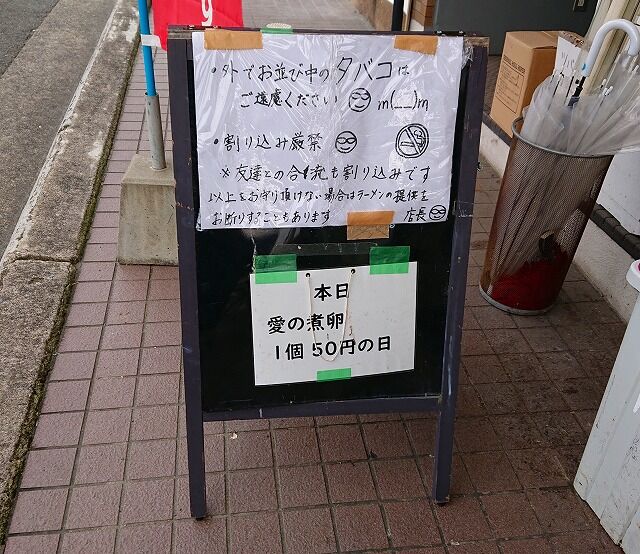 ・外でお並び中のタバコは
ご遠慮ください m(__)m
・割り込み厳禁
※友達との合流も割り込みです
以上をお守り頂けない場合はラーメンの提供を
お断りすることもあります 店長
本日
愛の煮卵
1個 50円の日